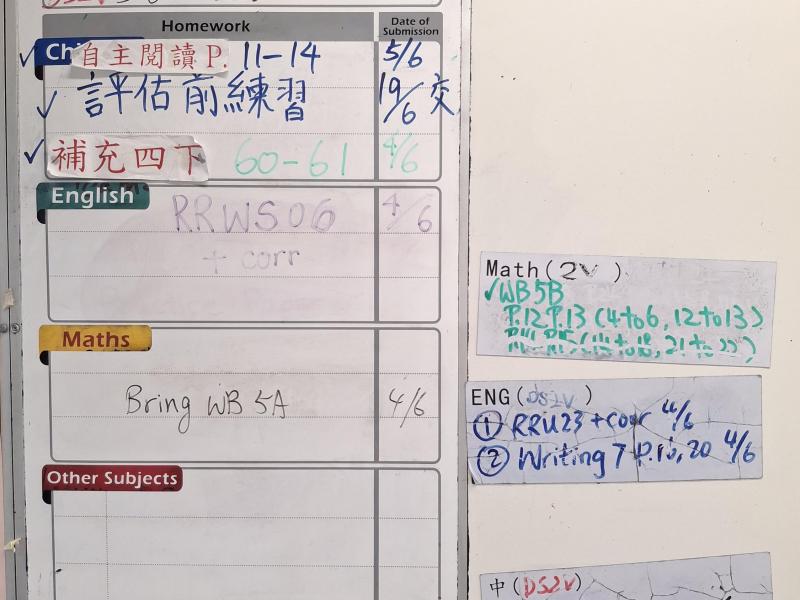 Homework Date of Submission
Chi 自主閱讀 P. 11-14 5/6
評估前練習 19/6 交
補充四下 60-61 4/6
English
RRWS06 4/6
+ corr
Maths
Bring WB 5A 4/6
Other Subjects
Math(2V)
✓WB5B
P.12 P.13 (4to6, 12to13)
ENG(DS2V)
① RRU23 + corr 4/6
② Writing 7 P.16, 20 4/6
中(DS2V)